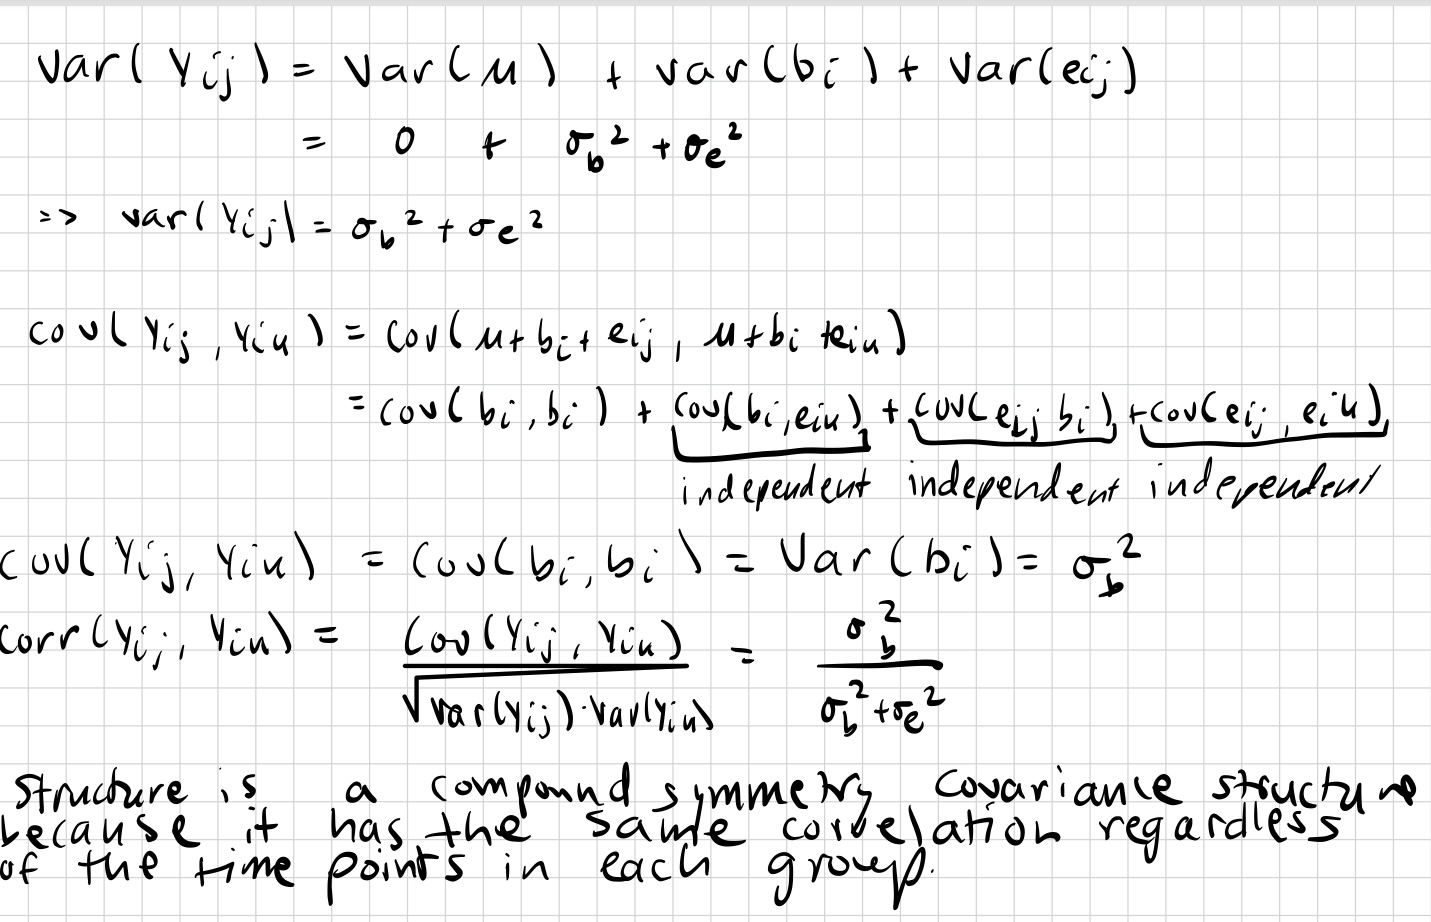 var(Yij) = Var(μ) + var(bi) + Var(eij)
= 0 + σb² + σe²
=> var(Yij) = σb² + σe²
cov(Yij, Yik) = Cov(μ + bi + eij, μ + bi + eik)
= cov(bi, bi) + Cov(bi, eik) + cov(eij bi) + cov(eij, eik)
independent independent independent
cov(Yij, Yik) = Cov(bi, bi) = Var(bi) = σb²
corr(Yij, Yik) = Cov(Yij, Yik) / √var(Yij)·Var(Yik) = σb² / σb² + σe²
Structure is a compound symmetry covariance structure
because it has the same correlation regardless
of the time points in each group.